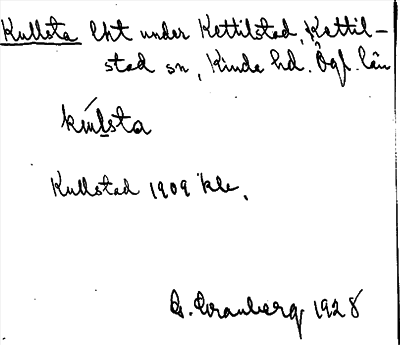 Kullsta lht under Kettilstad, Kettil-
stad sn, Kinda hd. Ögl. län
Kullstad 1909 kle.
G. Franberg 1928